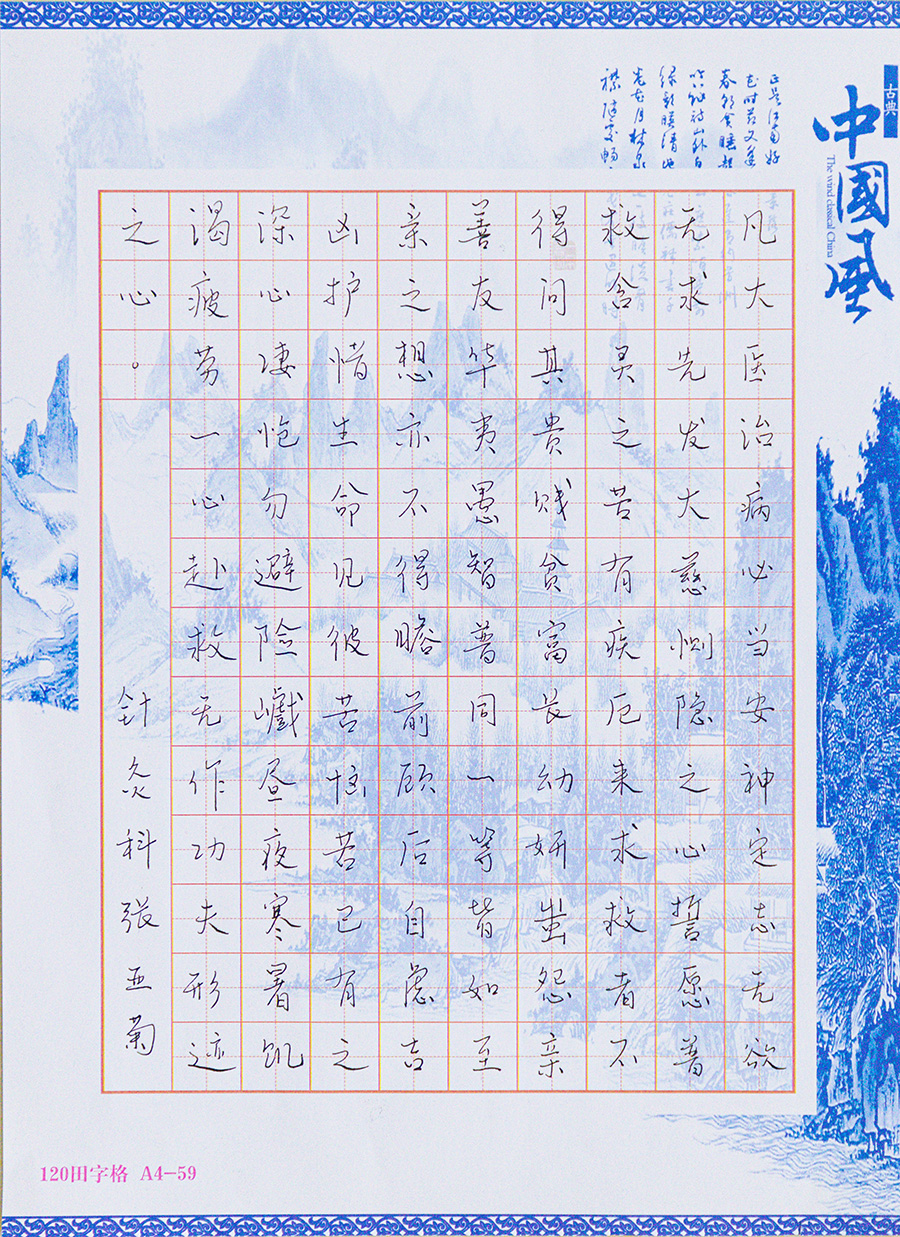 凡大医治病必当安神定志无欲
无求先发大慈恻隐之心誓愿普
救含灵之苦有疾厄来求救者不
得问其贵贱贫富长幼妍蚩怨亲
善友华夷愚智普同一等皆如至
亲之想亦不得瞻前顾后自虑吉
凶护惜生命见彼苦恼若己有之
深心凄怆勿避险巇昼夜寒暑饥
渴疲劳一心赴救无作功夫形迹
之心。
针灸科张亚菊
古典
中國風
The wind classical China
120田字格 A4-59